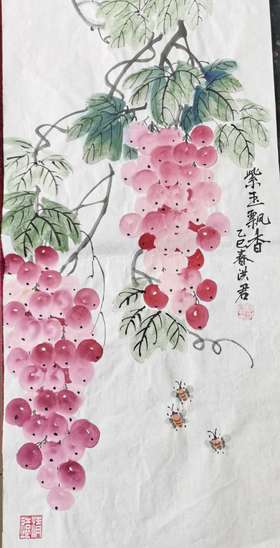 紫玉飘香
乙巳春洪君